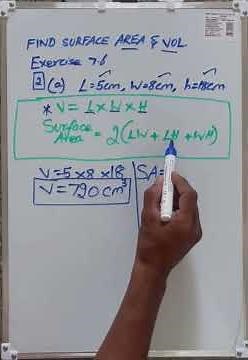 FIND SURFACE AREA & VOL
Exercise 7.6
2 (a) L=5cm, W=8cm, h=18cm
* V = L x W x H
Surface Area = 2(LW + LH + WH)
V=5 x 8 x 18
V=790 cm³
SA=